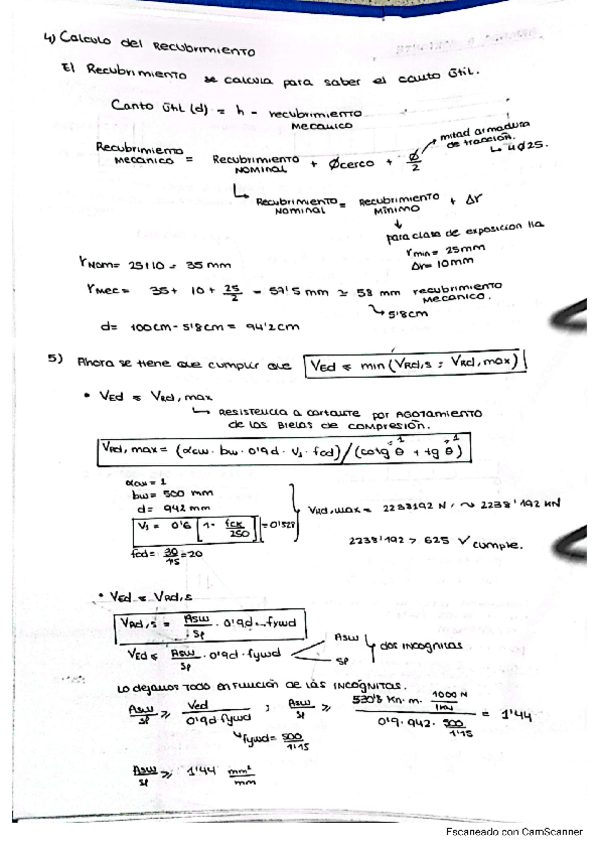 4) Calculo del Recubrimiento
El Recubrimiento se calcula para saber el canto útil.
Canto útil (d) = h - recubrimiento mecanico
Recubrimiento mecanico = Recubrimiento nominal + Øcerco + Ø/2 → mitad armadura de tracción. ↳ 4Ø25.
↳ Recubrimiento nominal = Recubrimiento mínimo + Δr
↓
para clase de exposicion IIa
rmin = 25mm
Δr = 10mm
rnom = 25+10 = 35 mm
rmec = 35 + 10 + 25/2 = 57'5 mm ≃ 58 mm recubrimiento mecanico.
↳ 5'8cm
d = 100cm - 5'8cm = 94'2cm
5) Ahora se tiene que cumplir que VEd ≤ min (VRd,s ; VRd,max)
• VEd ≤ VRd,max
↳ Resistencia a cortante por agotamiento
de las bielas de compresión.
VRd,max = (αcw · bw · 0'9d · V1 · fcd) / (cotg θ + tg θ)
αcw = 1
bw = 500 mm
d = 942 mm
V1 = 0'6 [1 - fck/250] = 0'528
fcd = 30/1'5 = 20
VRd,max = 2238192 N ~ 2238'192 KN
2238'192 > 625 ✓ cumple.
• VEd ≤ VRd,s
VRd,s = Asw/sp · 0'9d · fywd
VEd ≤ Asw/sp · 0'9d · fywd
Asw
sp
dos incognitas
Lo dejamos todo en función de las incógnitas.
Asw/sp ≥ Ved/0'9d fywd ; Asw/sp ≥ Kn·m · 1000 N/1KN / 0'9 · 942 · 500/1'15 = 1'44
↳ fywd = 500/1'15
Asw/sp ≥ 1'44 mm²/mm
Escaneado con CamScanner